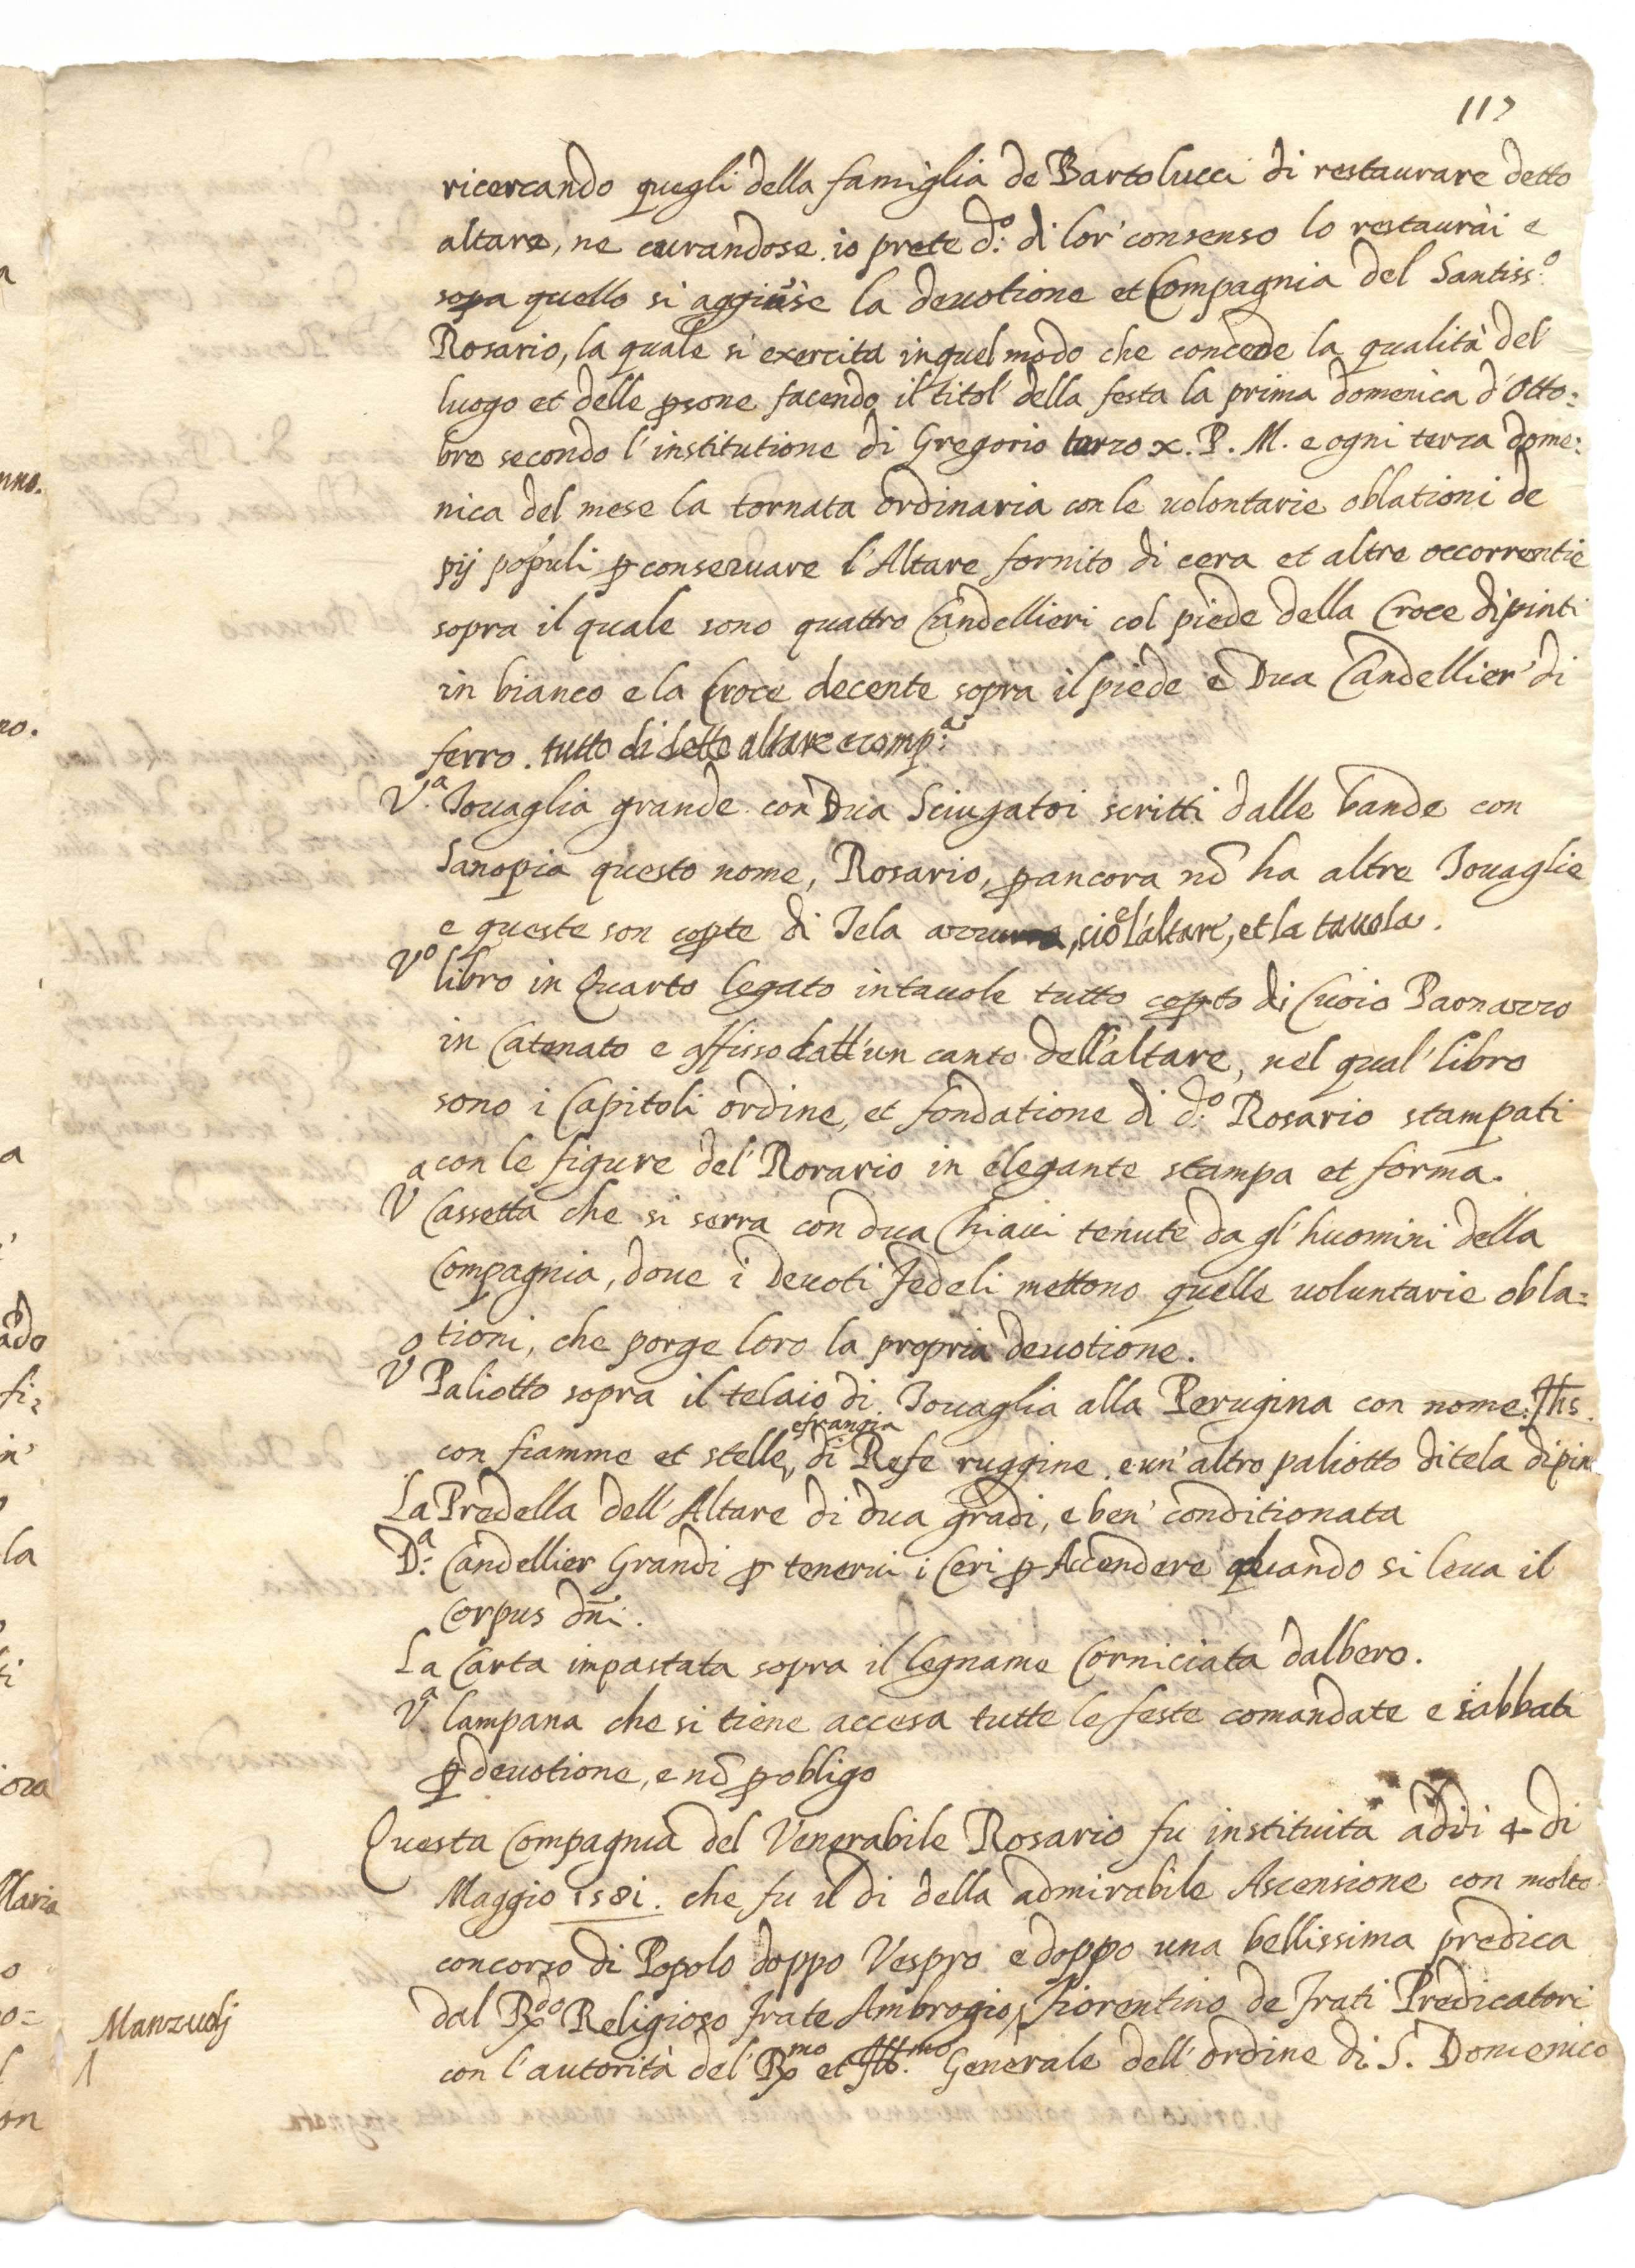 117
ricercando quegli della famiglia de Bartolucci di restaurare detto
altare, ne curandose io prete d.o di lor' consenso lo restaurai e
sopa quello si aggiuse la deuotione et Compagnia del Santiss.o
Rosario, la quale si exercita in quel modo che concede la qualità del
luogo et delle psone facendo il titol' della festa la prima domenica d'Otto:
bre secondo l'institutione di Gregorio terzo x. P. M. e ogni terza dome:
nica del mese la tornata ordinaria con le uolontarie oblationi de
pij populi p conseruare l'Altare fornito di cera et altre occorrentie
sopra il quale sono quattro Candellieri col piede della Croce dipinti
in bianco e la Croce decente sopra il piede e Dua Candellier' di
ferro. tutto di detto altare e comp.a
V.a Touaglia grande con Dua Sciugatoi scritti dalle bande con
Sanopia questo nome, Rosario, p ancora nō ha altre Touaglie
e queste son copte di Tela azzurra, cioè l'altare, et la tauola.
Vo libro in Quarto legato in tauole tutto copto di Cuoio Paonazzo
in Catenato e affisso dall'un canto dell'altare, nel qual' libro
sono i Capitoli ordine, et fondatione di d.o Rosario stampati
con le figure del' Rorario in elegante stampa et forma.
Va Cassetta che si serra con dua Chiaui tenute da gl' huomini della
Compagnia, doue i Deuoti Fedeli mettono quelle uoluntarie obla=
tioni, che porge loro la propria deuotione.
Vo Paliotto sopra il telaio di Touaglia alla Perugina con nome: Jhs.
con fiamme et stelle, e frangia di Refe ruggine. e un' altro paliotto di tela dipin
La Predella dell'Altare di dua gradi, e ben' conditionata
D.a Candellier Grandi p tenerui i Ceri p Accendere quando si leua il
Corpus dñi.
La Carta impastata sopra il legname Corniciata dalbero.
Va lampana che si tiene accesa tutte le feste comandate e sabbati
p deuotione, e nō p obligo
Questa Compagnia del Venerabile Rosario fu instituita addi 4 di
Maggio 1581. che fu il di della admirabile Ascensione con molto
concorso di Popolo doppo Vespro e doppo una bellissima predica
dal R.do Religioso frate Ambrogio Fiorentino de frati Predicatori
Manzuolj
con l'autorità del' R.mo et Ill.mo Generale dell'ordine di S. Domenico